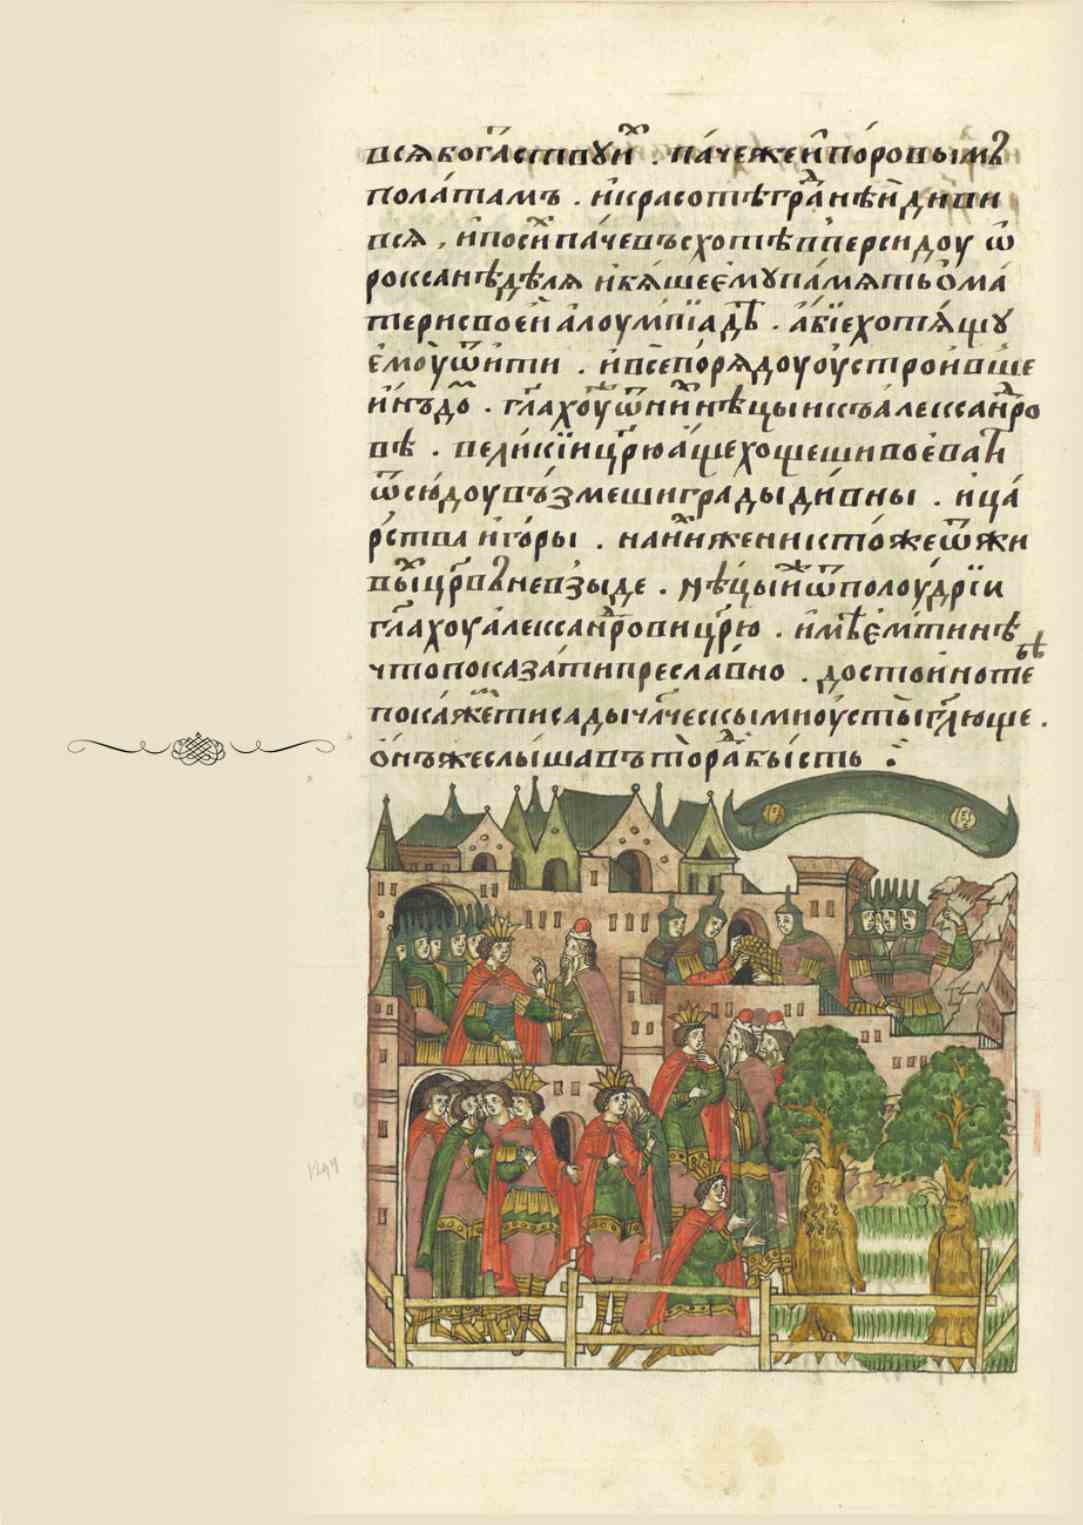 вся богаствуи҆ . па́че же и҆ по́ровымъ
пола́тамъ . и҆ красотѣ гра́нѣи҆ диви
вся , и҆ поси па́че въсхотѣ в персидоу ѿ
роксанѣ дѣля и҆ бя́ше є҆му па́мять ѻ҆ ма
тери своеи҆ а҆лоумпїадѣ . а҆бїе хотя́щу
є҆моу ѿити . и҆ все поря́доу оу҆строивше
и҆нъдо . гл҃ахоу ѿ ни҆ нѣцыи къ а҆леѯан҆ро
вѣ . вели́кїи цр҃ю а҆ще хощеши воева́ти
ѿсю́доу въ́змеши гра́ды ди́вны . и҆ ца́
рства и҆ го́ры . на ни́ же никто́же ѿ жи
вы́ цр҃въ не взы́де . нѣцыи ѿ полоу́дрїи
гл҃ахоу а҆леѯан҆рови цр҃ю . и҆мѣе҆м ти нѣ
что показа́ти пресла́вно . досто́ино тебѣ
пока́жем ти сады чл҃ческы мноу҆сты гл҃юще .
ѻ҆нъ же слы́шавъ то ра́ бы́сть .
1294